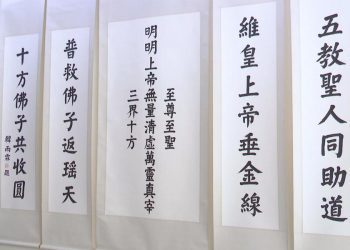 五教聖人同助道
維皇上帝垂金線
至尊至聖
明明上帝無量清虛萬靈真宰
三界十方
普救佛子返瑤天
十方佛子共收圓
韓雨霖
題